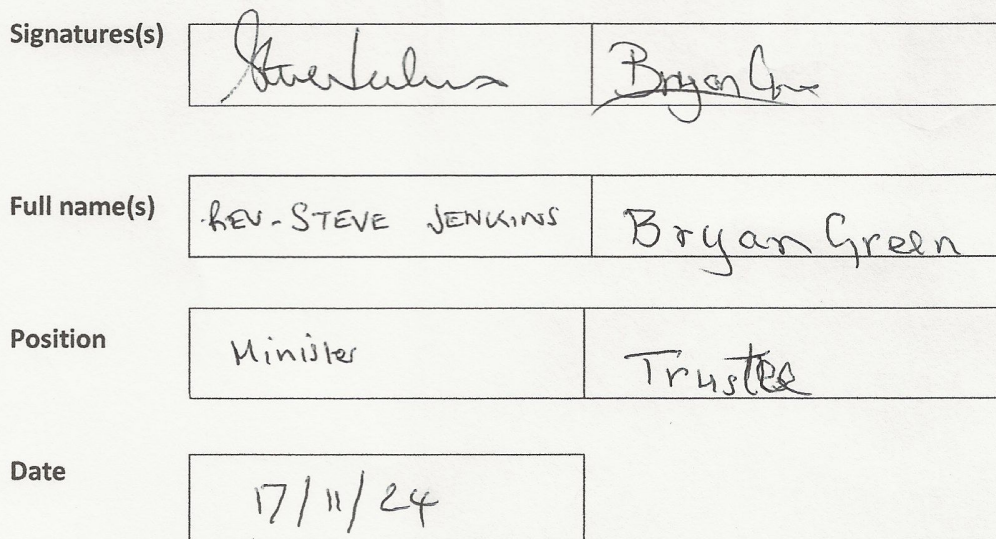 Signatures(s) Steve Jenkins Bryan Green
Full name(s) REV. STEVE JENKINS Bryan Green
Position Minister Trustee
Date 17/11/24